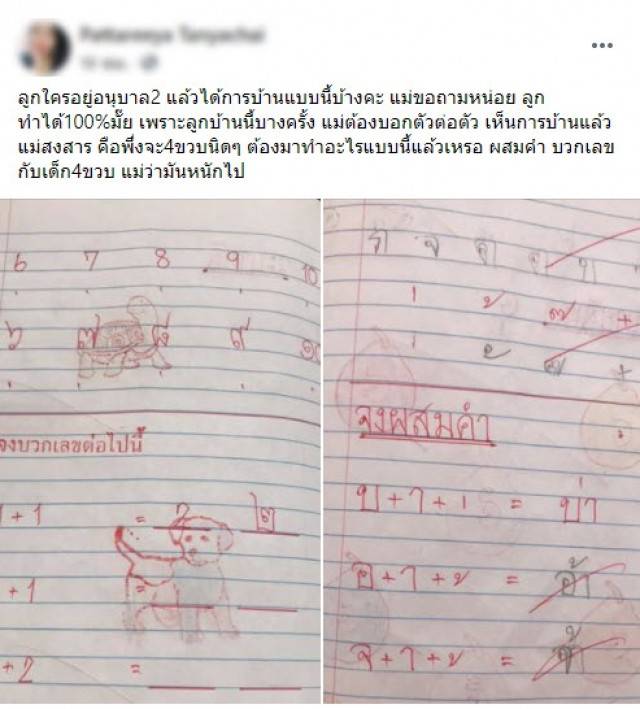 ลูกใครอยู่อนุบาล2 แล้วได้การบ้านแบบนี้บ้างคะ แม่ขอถามหน่อย ลูก
ทำได้100%มั๊ย เพราะลูกบ้านนี้บางครั้ง แม่ต้องบอกตัวต่อตัว เห็นการบ้านแล้ว
แม่สงสาร คือพึ่งจะ4ขวบนิดๆ ต้องมาทำอะไรแบบนี้แล้วเหรอ ผสมคำ บวกเลข
กับเด็ก4ขวบ แม่ว่ามันหนักไป
6 7 8 9 10
๖ ๗ ๘ ๙ ๑๐
จงบวกเลขต่อไปนี้
1 + 1 = 2 ๒
+ 1 =
+ 2 =
ร จ
่ ้ ๊ ๋
่ ้ ๊ ๋
จงผสมคำ
บ + า + ่ = บ่า
อ + า + ้ = อ้า
จ + า + ้ = จ้า